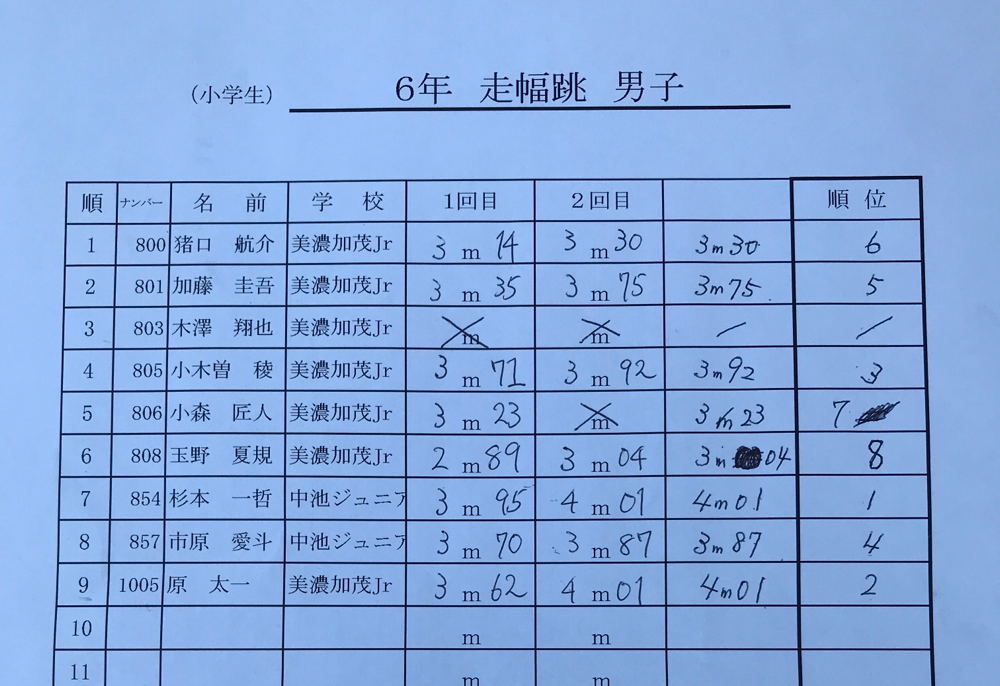 (小学生) 6年 走幅跳 男子
順 ナンバー 名 前 学 校 1回目 2回目 順 位
1 800 猪口 航介 美濃加茂Jr 3 m 14 3 m 30 3m30 6
2 801 加藤 圭吾 美濃加茂Jr 3 m 35 3 m 75 3m75 5
3 803 木澤 翔也 美濃加茂Jr m m
4 805 小木曽 稜 美濃加茂Jr 3 m 71 3 m 92 3m92 3
5 806 小森 匠人 美濃加茂Jr 3 m 23 m 3m23 7
6 808 玉野 夏規 美濃加茂Jr 2 m 89 3 m 04 3m04 8
7 854 杉本 一哲 中池ジュニア 3 m 95 4 m 01 4m01 1
8 857 市原 愛斗 中池ジュニア 3 m 70 3 m 87 3m87 4
9 1005 原 太一 美濃加茂Jr 3 m 62 4 m 01 4m01 2
10 m m
11 m m